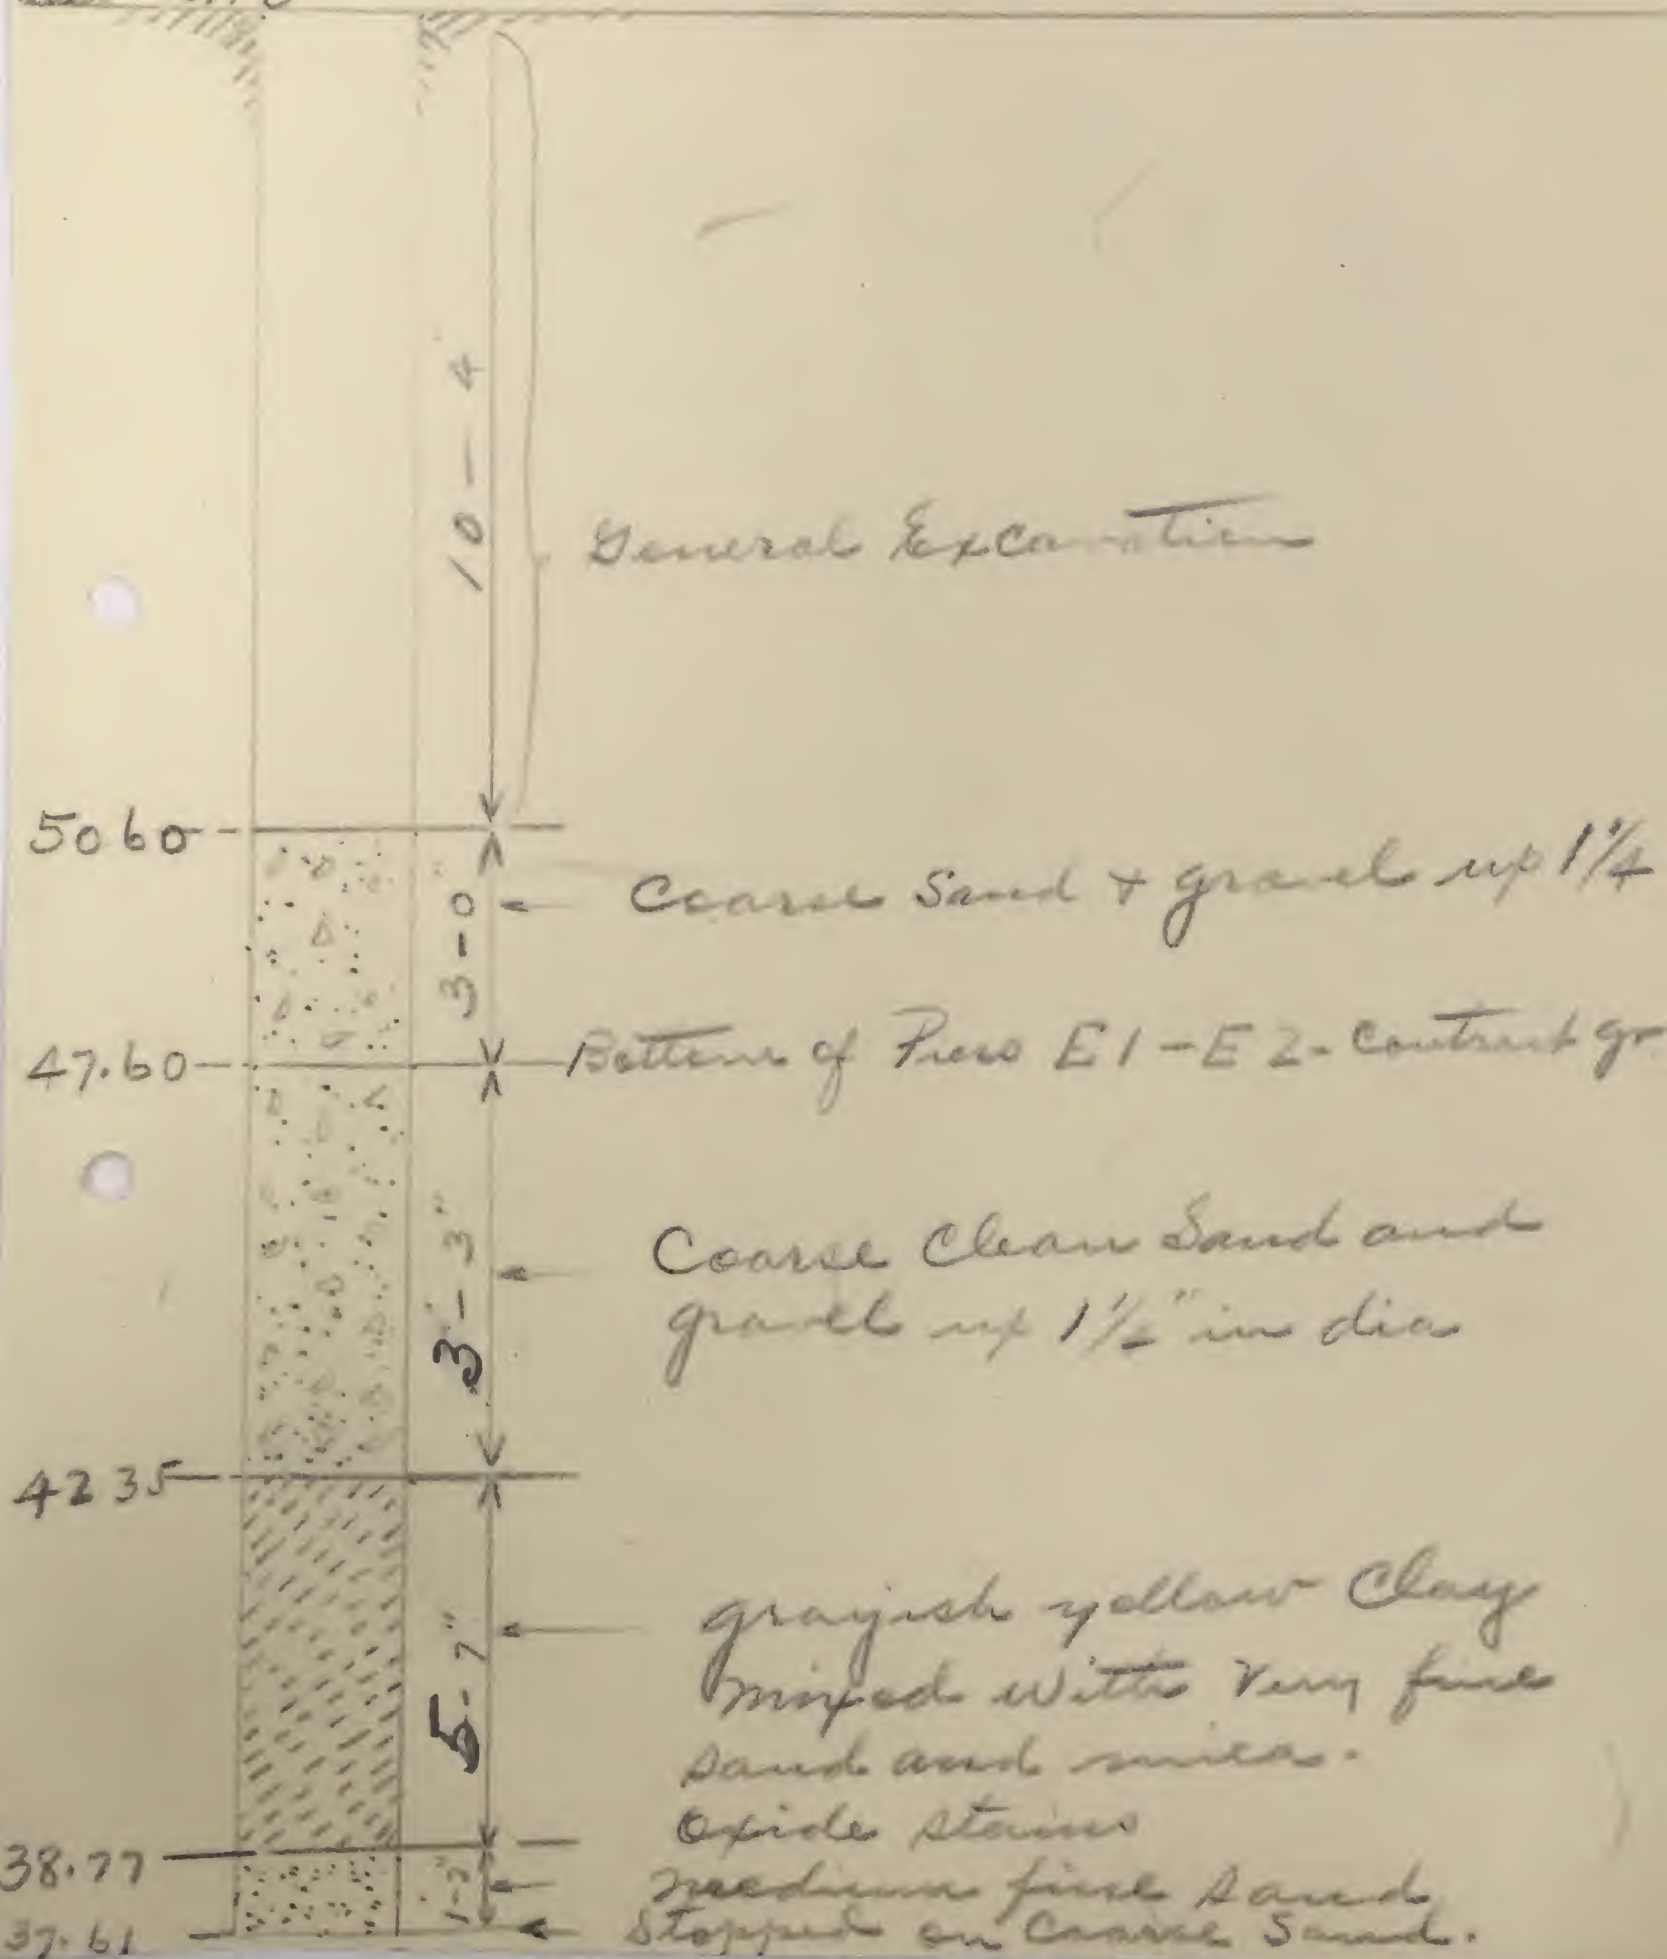 10-4
General Excavation
50 60
3-0
Coarse Sand + gravel up 1 1/4
47.60
Bottom of Piers E1-E2-Contract gr
3'-3"
Coarse Clean Sand and
gravel up 1 1/2" in dia
42 35
5-7"
grayish yellow Clay
mixed with Very fine
sand and mica.
Oxide stains
38.77
1-2"
medium fine sand
37.61
Stopped on Coarse Sand.